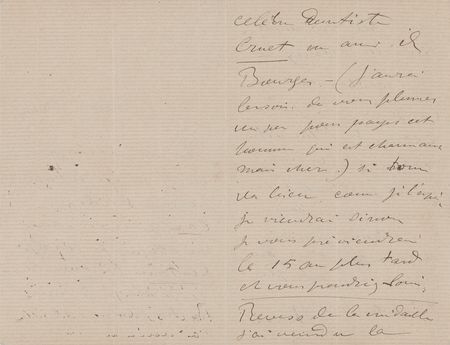 célèbre Dentiste
Cruet un ami de
Bourges – (j'aurai
besoin de vos plumes
un peu pour payer cet
homme qui est charmant
mais cher.) si tout
va bien, comme je l'espère
je viendrai sinon
je vous préviendrai
le 15 au plus tard
et vous
Revers de la médaille
j'ai vendu la